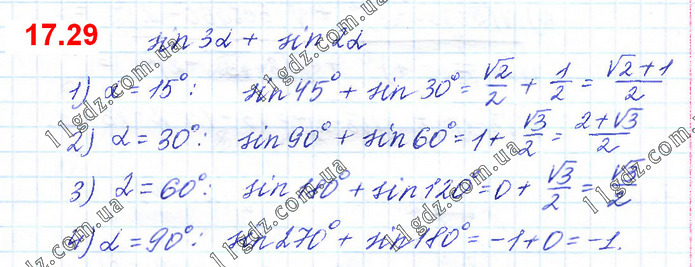 17.29
sin 3α + sin 2α
1) α = 15°: sin 45° + sin 30° = √2/2 + 1/2 = (√2+1)/2
2) α = 30°: sin 90° + sin 60° = 1 + √3/2 = (2+√3)/2
3) α = 60°: sin 180° + sin 120° = 0 + √3/2 = √3/2
4) α = 90°: sin 270° + sin 180° = -1 + 0 = -1.
11gdz.com.ua
11gdz.com.ua
11gdz.com.ua
11gdz.com.ua
11gdz.com.ua